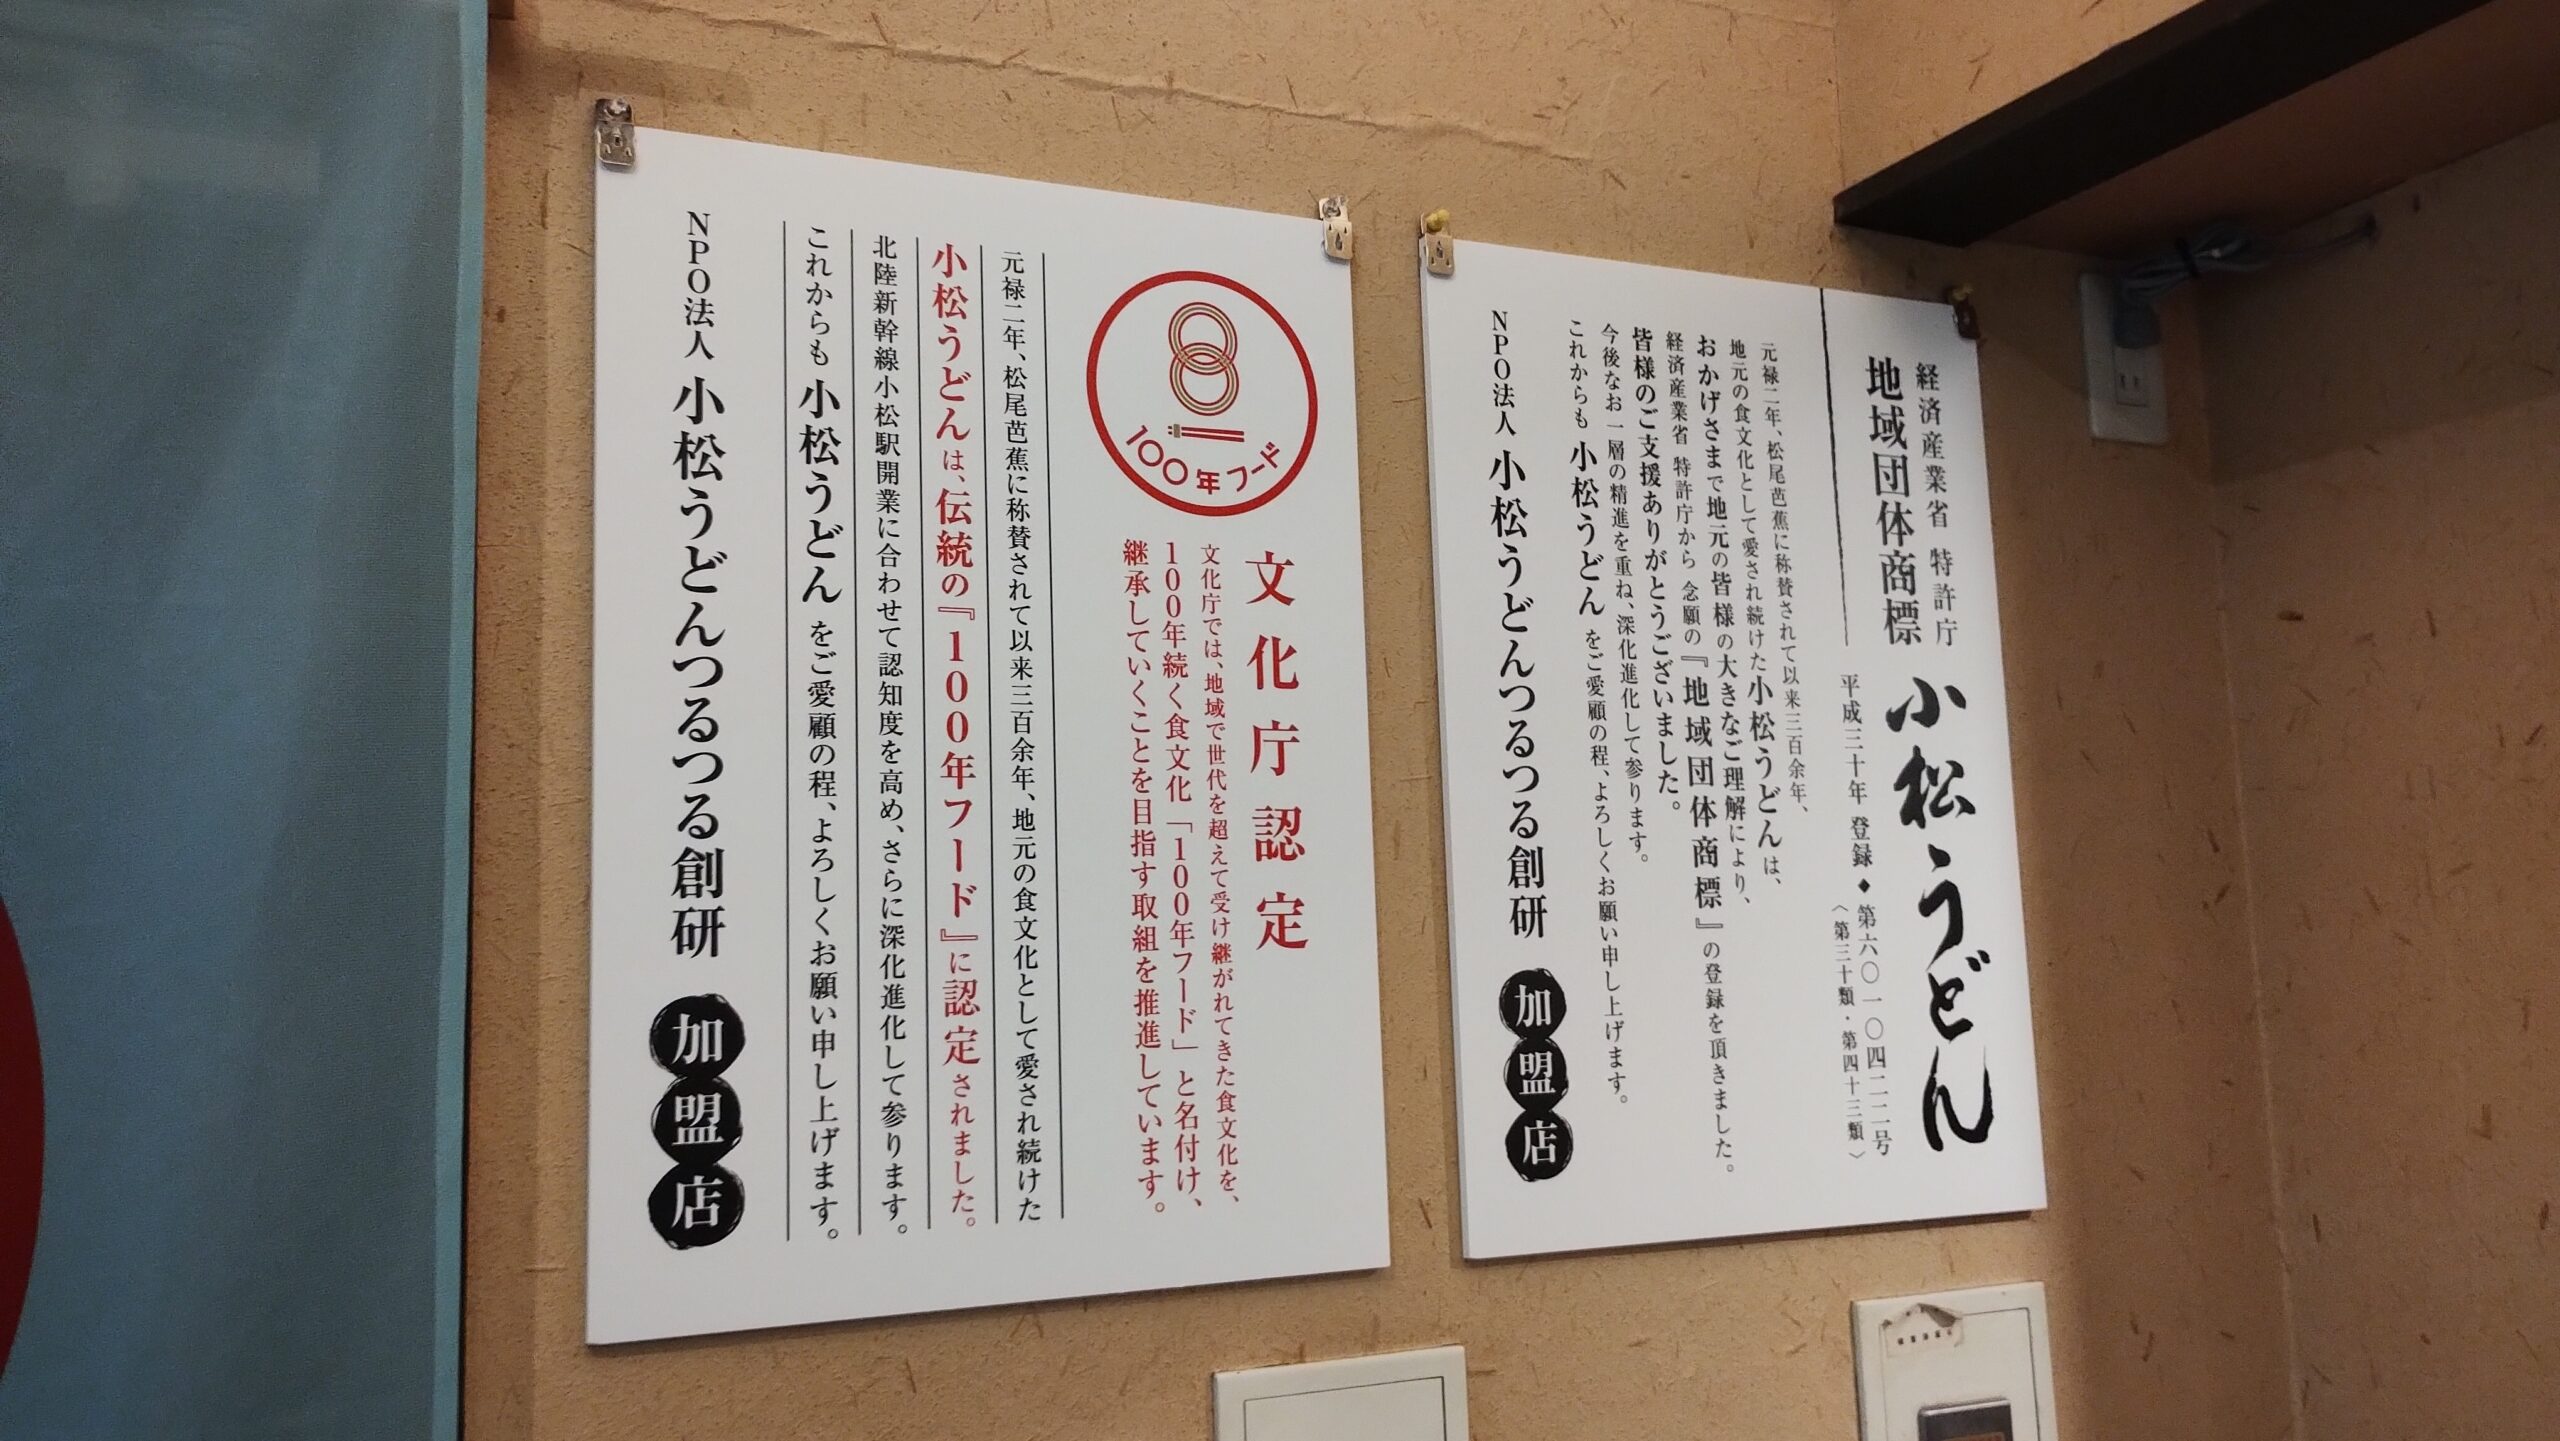 経済産業省 特許庁
地域団体商標
小松うどん
平成三十年 登録◆第六〇一〇四二二号
〈第三十類・第四十三類〉
元禄二年、松尾芭蕉に称賛されて以来三百余年、
地元の食文化として愛され続けた小松うどんは、
おかげさまで地元の皆様の大きなご理解により、
経済産業省 特許庁から 念願の『地域団体商標』の登録を頂きました。
皆様のご支援ありがとうございました。
今後なお一層の精進を重ね、深化進化して参ります。
これからも 小松うどん をご愛顧の程、よろしくお願い申し上げます。
NPO法人 小松うどんつるつる創研 加盟店
100年フード
文化庁認定
文化庁では、地域で世代を超えて受け継がれてきた食文化を、
100年続く食文化「100年フード」と名付け、
継承していくことを目指す取組を推進しています。
元禄二年、松尾芭蕉に称賛されて以来三百余年、地元の食文化として愛され続けた
小松うどんは、伝統の『100年フード』に認定されました。
北陸新幹線小松駅開業に合わせて認知度を高め、さらに深化進化して参ります。
これからも 小松うどん をご愛顧の程、よろしくお願い申し上げます。
NPO法人 小松うどんつるつる創研 加盟店